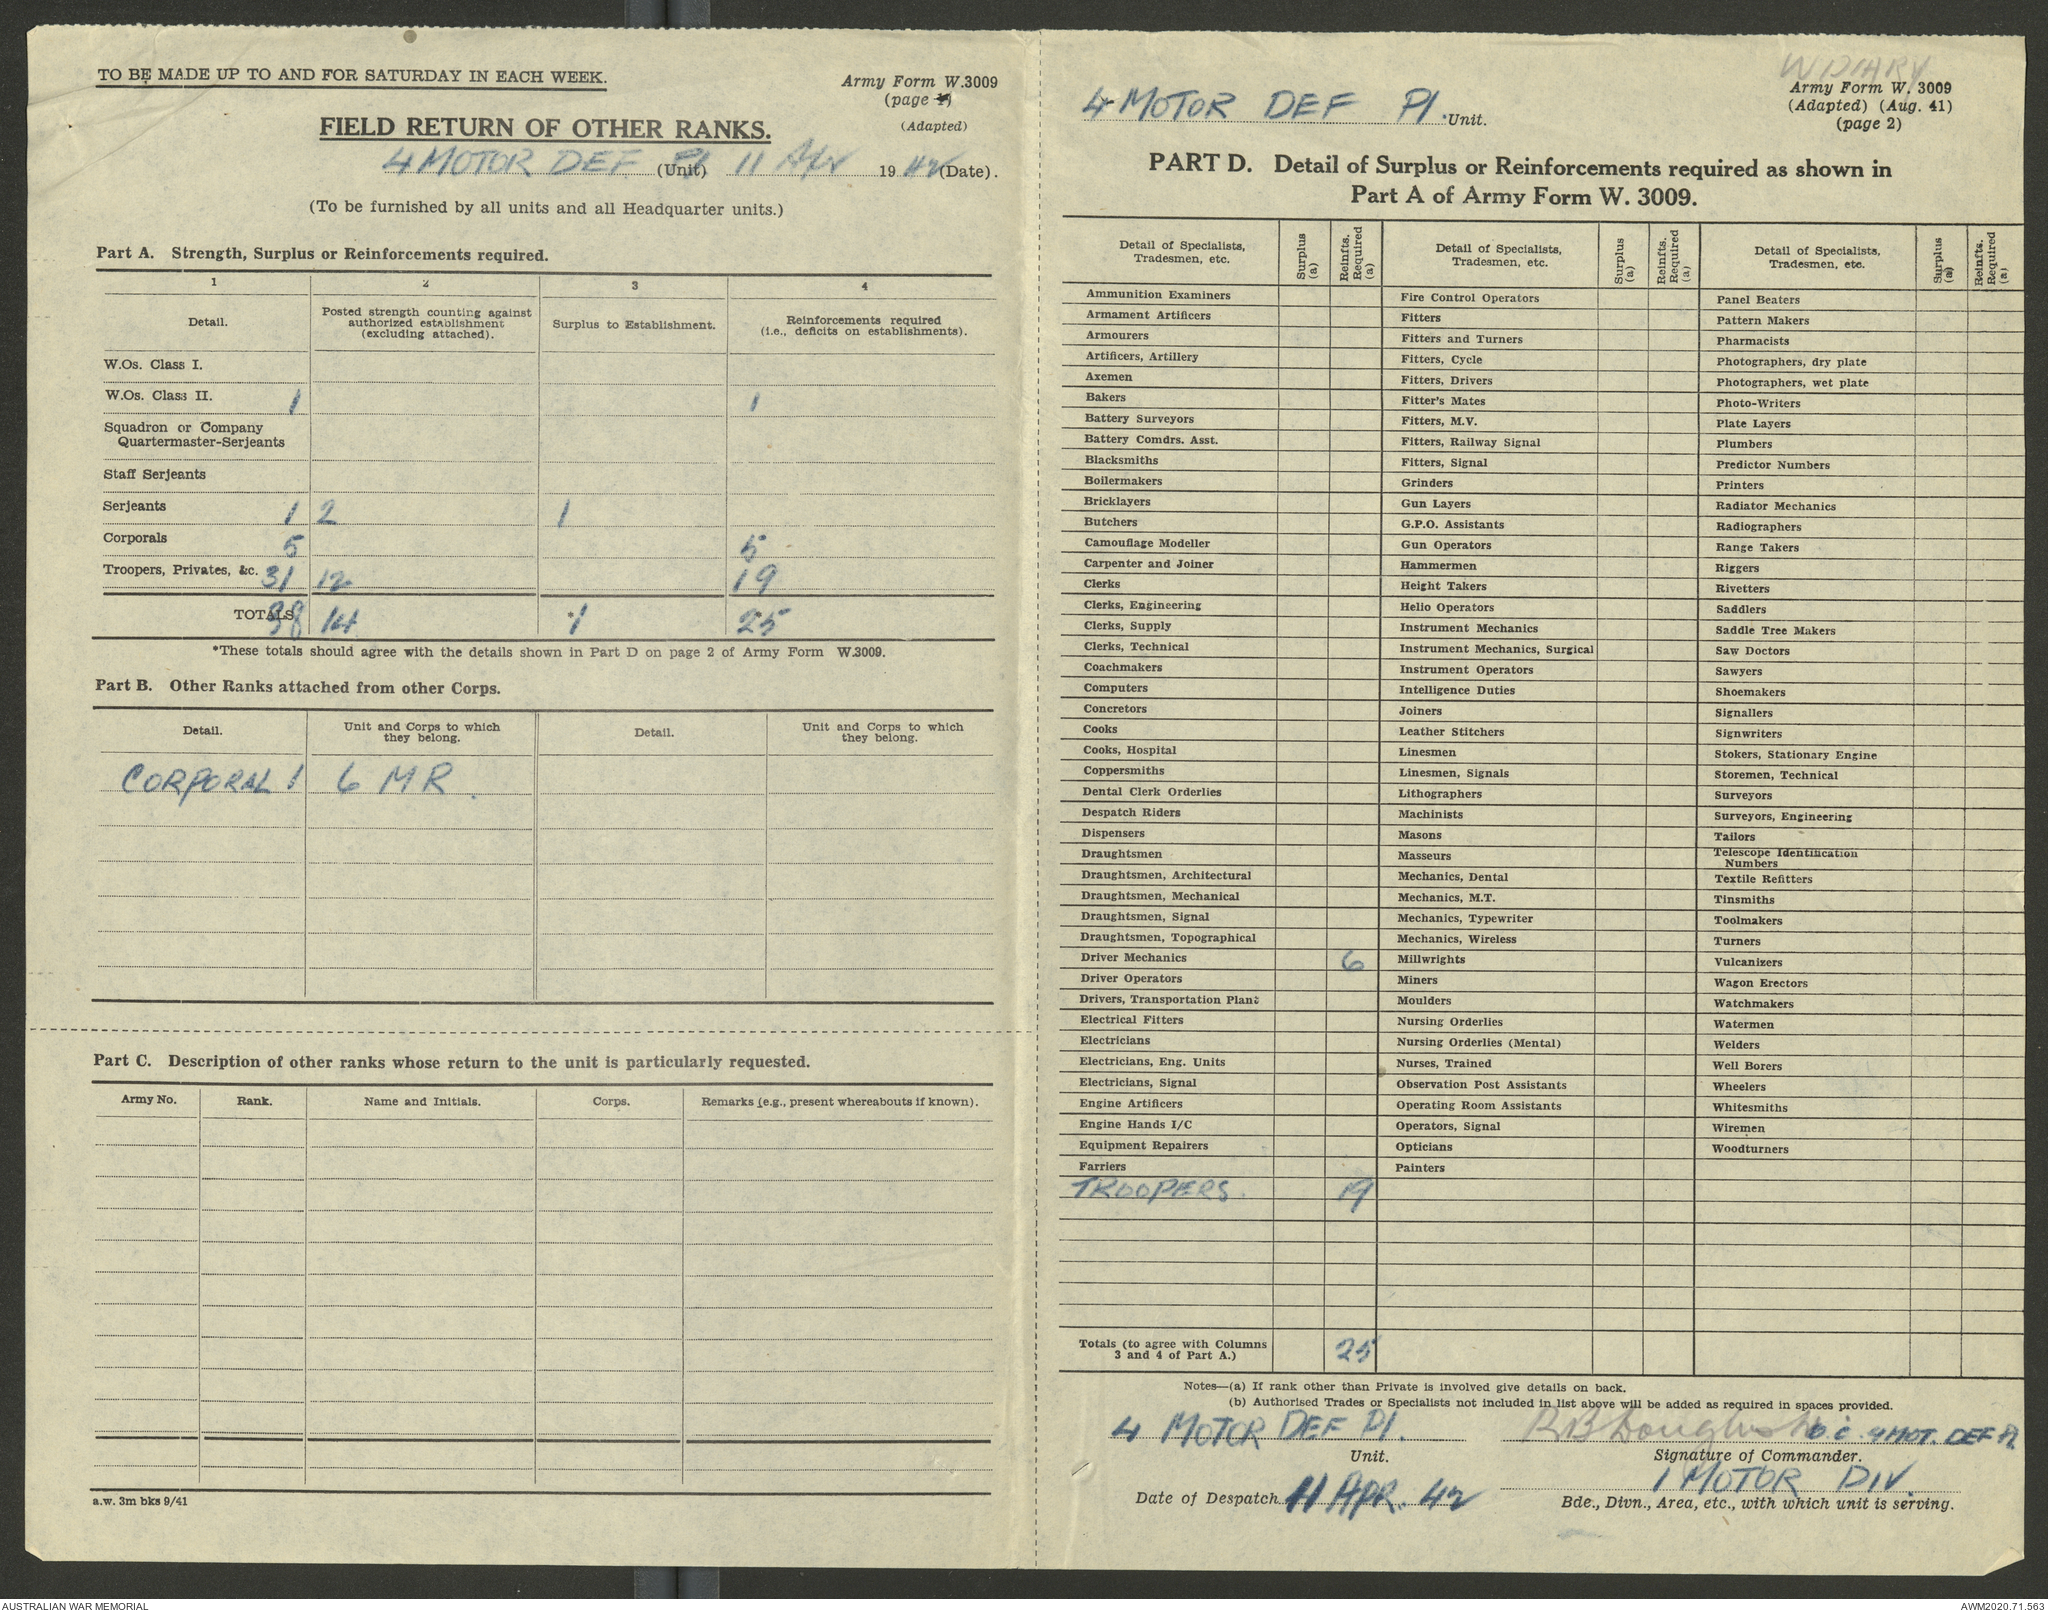 TO BE MADE UP TO AND FOR SATURDAY IN EACH WEEK.
Army Form W.3009
(page 1)
(Adapted)
FIELD RETURN OF OTHER RANKS.
4 MOTOR DEF Pl (Unit) 11 Apr 1942 (Date).
(To be furnished by all units and all Headquarter units.)
Part A. Strength, Surplus or Reinforcements required.
1 2 3 4
Detail. Posted strength counting against authorized establishment (excluding attached). Surplus to Establishment. Reinforcements required (i.e., deficits on establishments).
W.Os. Class I.
W.Os. Class II. 1 1
Squadron or Company
Quartermaster-Serjeants
Staff Serjeants
Serjeants 1 2 1
Corporals 5 5
Troopers, Privates, &c. 31 12 19
TOTALS 38 14 *1 25
*These totals should agree with the details shown in Part D on page 2 of Army Form W.3009.
Part B. Other Ranks attached from other Corps.
Detail. Unit and Corps to which they belong. Detail. Unit and Corps to which they belong.
CORPORAL 1 6 MR.
Part C. Description of other ranks whose return to the unit is particularly requested.
Army No. Rank. Name and Initials. Corps. Remarks (e.g., present whereabouts if known).
a.w. 3m bks 9/41
W DIARY
4 MOTOR DEF Pl. Unit.
Army Form W. 3009
(Adapted) (Aug. 41)
(page 2)
PART D. Detail of Surplus or Reinforcements required as shown in
Part A of Army Form W. 3009.
Detail of Specialists, Tradesmen, etc. Surplus (a) Reinfts. Required (a) Detail of Specialists, Tradesmen, etc. Surplus (a) Reinfts. Required (a) Detail of Specialists, Tradesmen, etc. Surplus (a) Reinfts. Required (a)
Ammunition Examiners Fire Control Operators Panel Beaters
Armament Artificers Fitters Pattern Makers
Armourers Fitters and Turners Pharmacists
Artificers, Artillery Fitters, Cycle Photographers, dry plate
Axemen Fitters, Drivers Photographers, wet plate
Bakers Fitter's Mates Photo-Writers
Battery Surveyors Fitters, M.V. Plate Layers
Battery Comdrs. Asst. Fitters, Railway Signal Plumbers
Blacksmiths Fitters, Signal Predictor Numbers
Boilermakers Grinders Printers
Bricklayers Gun Layers Radiator Mechanics
Butchers G.P.O. Assistants Radiographers
Camouflage Modeller Gun Operators Range Takers
Carpenter and Joiner Hammermen Riggers
Clerks Height Takers Rivetters
Clerks, Engineering Helio Operators Saddlers
Clerks, Supply Instrument Mechanics Saddle Tree Makers
Clerks, Technical Instrument Mechanics, Surgical Saw Doctors
Coachmakers Instrument Operators Sawyers
Computers Intelligence Duties Shoemakers
Concretors Joiners Signallers
Cooks Leather Stitchers Signwriters
Cooks, Hospital Linesmen Stokers, Stationary Engine
Coppersmiths Linesmen, Signals Storemen, Technical
Dental Clerk Orderlies Lithographers Surveyors
Despatch Riders Machinists Surveyors, Engineering
Dispensers Masons Tailors
Draughtsmen Masseurs Telescope Identification Numbers
Draughtsmen, Architectural Mechanics, Dental Textile Refitters
Draughtsmen, Mechanical Mechanics, M.T. Tinsmiths
Draughtsmen, Signal Mechanics, Typewriter Toolmakers
Draughtsmen, Topographical Mechanics, Wireless Turners
Driver Mechanics 6 Millwrights Vulcanizers
Driver Operators Miners Wagon Erectors
Drivers, Transportation Plant Moulders Watchmakers
Electrical Fitters Nursing Orderlies Watermen
Electricians Nursing Orderlies (Mental) Welders
Electricians, Eng. Units Nurses, Trained Well Borers
Electricians, Signal Observation Post Assistants Wheelers
Engine Artificers Operating Room Assistants Whitesmiths
Engine Hands I/C Operators, Signal Wiremen
Equipment Repairers Opticians Woodturners
Farriers Painters
TROOPERS. 19
Totals (to agree with Columns 3 and 4 of Part A.) 25
Notes—(a) If rank other than Private is involved give details on back.
(b) Authorised Trades or Specialists not included in list above will be added as required in spaces provided.
4 MOTOR DEF Pl. O.C. 4 MOT. DEF Pl
Unit. Signature of Commander.
1 MOTOR DIV.
Date of Despatch 11 APR. 42 Bde., Divn., Area, etc., with which unit is serving.
AUSTRALIAN WAR MEMORIAL
AWM2020.71.563